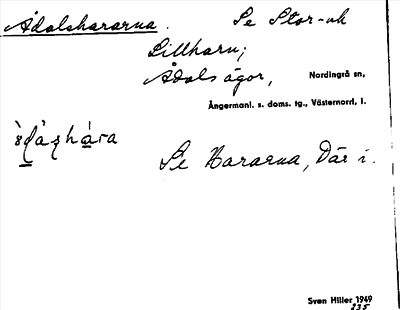 Ådalshararna. Se Stor- ok
Lillharn;
Ådals ägor, Nordingrå sn,
Ångermanl. s. doms. tg., Västernorrl. l.
Se Hararna, Där i.
Sven Hiller 1949
235